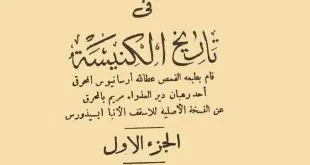 فى
تاريخ الكنيسة
قام بطبعه القمص عطاالله أرسانيوس المحرقى
أحد رهبان دير العذراء مريم بالمحرق
عن النسخة الأصلية للأسقف الأنبا ايسيذورس
الجزء الأول